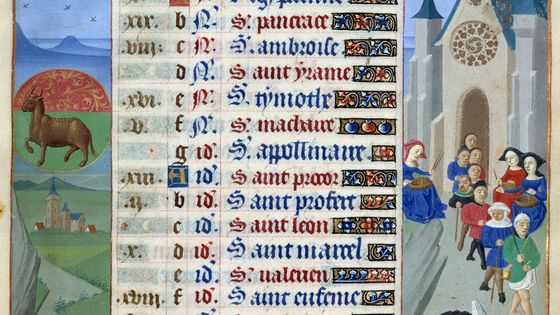 xix b N. S. pancrace
viii c N. S. ambroise
d N. Saint yrame
xvi e N. S. tymothe
v. f N. S. machaire
g id. S. appollinaire
xiii A id. Saint procor
ii b id. Saint profert
c id. Saint leon
x. d id. Saint marcel
e id. S. valerien
xviii f id. Saint eufenie